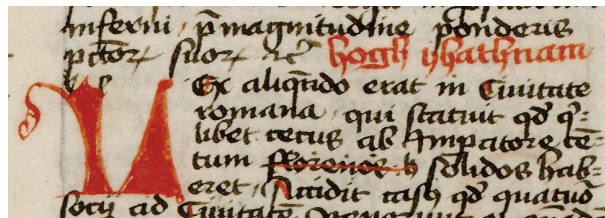 inferni, p̄ magnitudīne ponderis
pctōꝝ suoꝝ ⁊c̄ hogh yhathnam
Ex aliqn̄do erat in Ciuitate
romana, qui statuit qd̄ q̄-
libet cecus ab Impatore cē-
tum solidos hab-
eret, Accidit casꝫ qd̄ quatuor
socij ad Ciuitatē